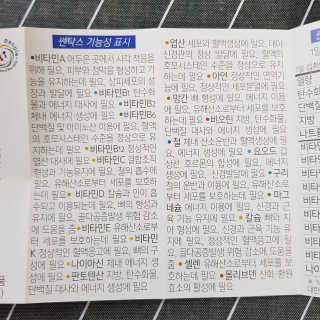 쎈탁스 기능성 표시
•비타민A 어두운 곳에서 시각 적응을
위해 필요, 피부와 점막을 형성하고 기
능을 유지하는데 필요, 상피세포의 성
장과 발달에 필요 •비타민B1 탄수화
물과 에너지 대사에 필요 •비타민B2
체내 에너지 생성에 필요 •비타민B6
단백질 및 아미노산 이용에 필요, 혈액
의 호모시스테인 수준을 정상으로 유
지하는데 필요 •비타민B12 정상적인
엽산 대사에 필요 •비타민C 결합조직
형성과 기능유지에 필요, 철의 흡수에
필요, 유해산소로부터 세포를 보호하는
데 필요 •비타민D 칼슘과 인이 흡
수되고 이용되는데 필요, 뼈의 형성과
유지에 필요, 골다공증발생 위험 감소
에 도움을 줌 •비타민E 유해산소로부
터 세포를 보호하는데 필요 •비타민
K 정상적인 혈액응고에 필요, 뼈의 구
성에 필요 •나이아신 체내 에너지 생
성에 필요 •판토텐산 지방, 탄수화물,
단백질 대사와 에너지 생성에 필요
•엽산 세포와 혈액생성에 필요, 태아
신경관의 정상 발달에 필요, 혈액의
호모시스테인 수준을 정상으로 유지
하는데 필요 •아연 정상적인 면역기
능에 필요, 정상적인 세포분열에 필요
•망간 뼈 형성에 필요, 에너지 이용에
필요, 유해산소로부터 세포를 보호하
는데 필요 •비오틴 지방, 탄수화물,
단백질 대사와 에너지 생성에 필요
•철 체내 산소운반과 혈액생성에 필
요, 에너지 생성에 필요 •요오드 갑
상선 호르몬의 합성에 필요, 에너지
생성에 필요, 신경발달에 필요 •구리
철의 운반과 이용에 필요, 유해산소로
부터 세포를 보호하는데 필요 •마그
네슘 에너지 이용에 필요, 신경과 근
육 기능 유지에 필요 •칼슘 뼈와 치
아 형성에 필요, 신경과 근육 기능 유
지에 필요, 정상적인 혈액응고에 필
요, 골다공증발생 위험 감소에 도움을
줌 •셀렌 유해산소로부터 세포를 보
호하는데 필요 •몰리브덴 산화·환원
효소의 활성에 필요
열량
탄수화
단백질
지방
나트륨
비타민
비타민
비타민
비타민
비타민
비타민
비타민